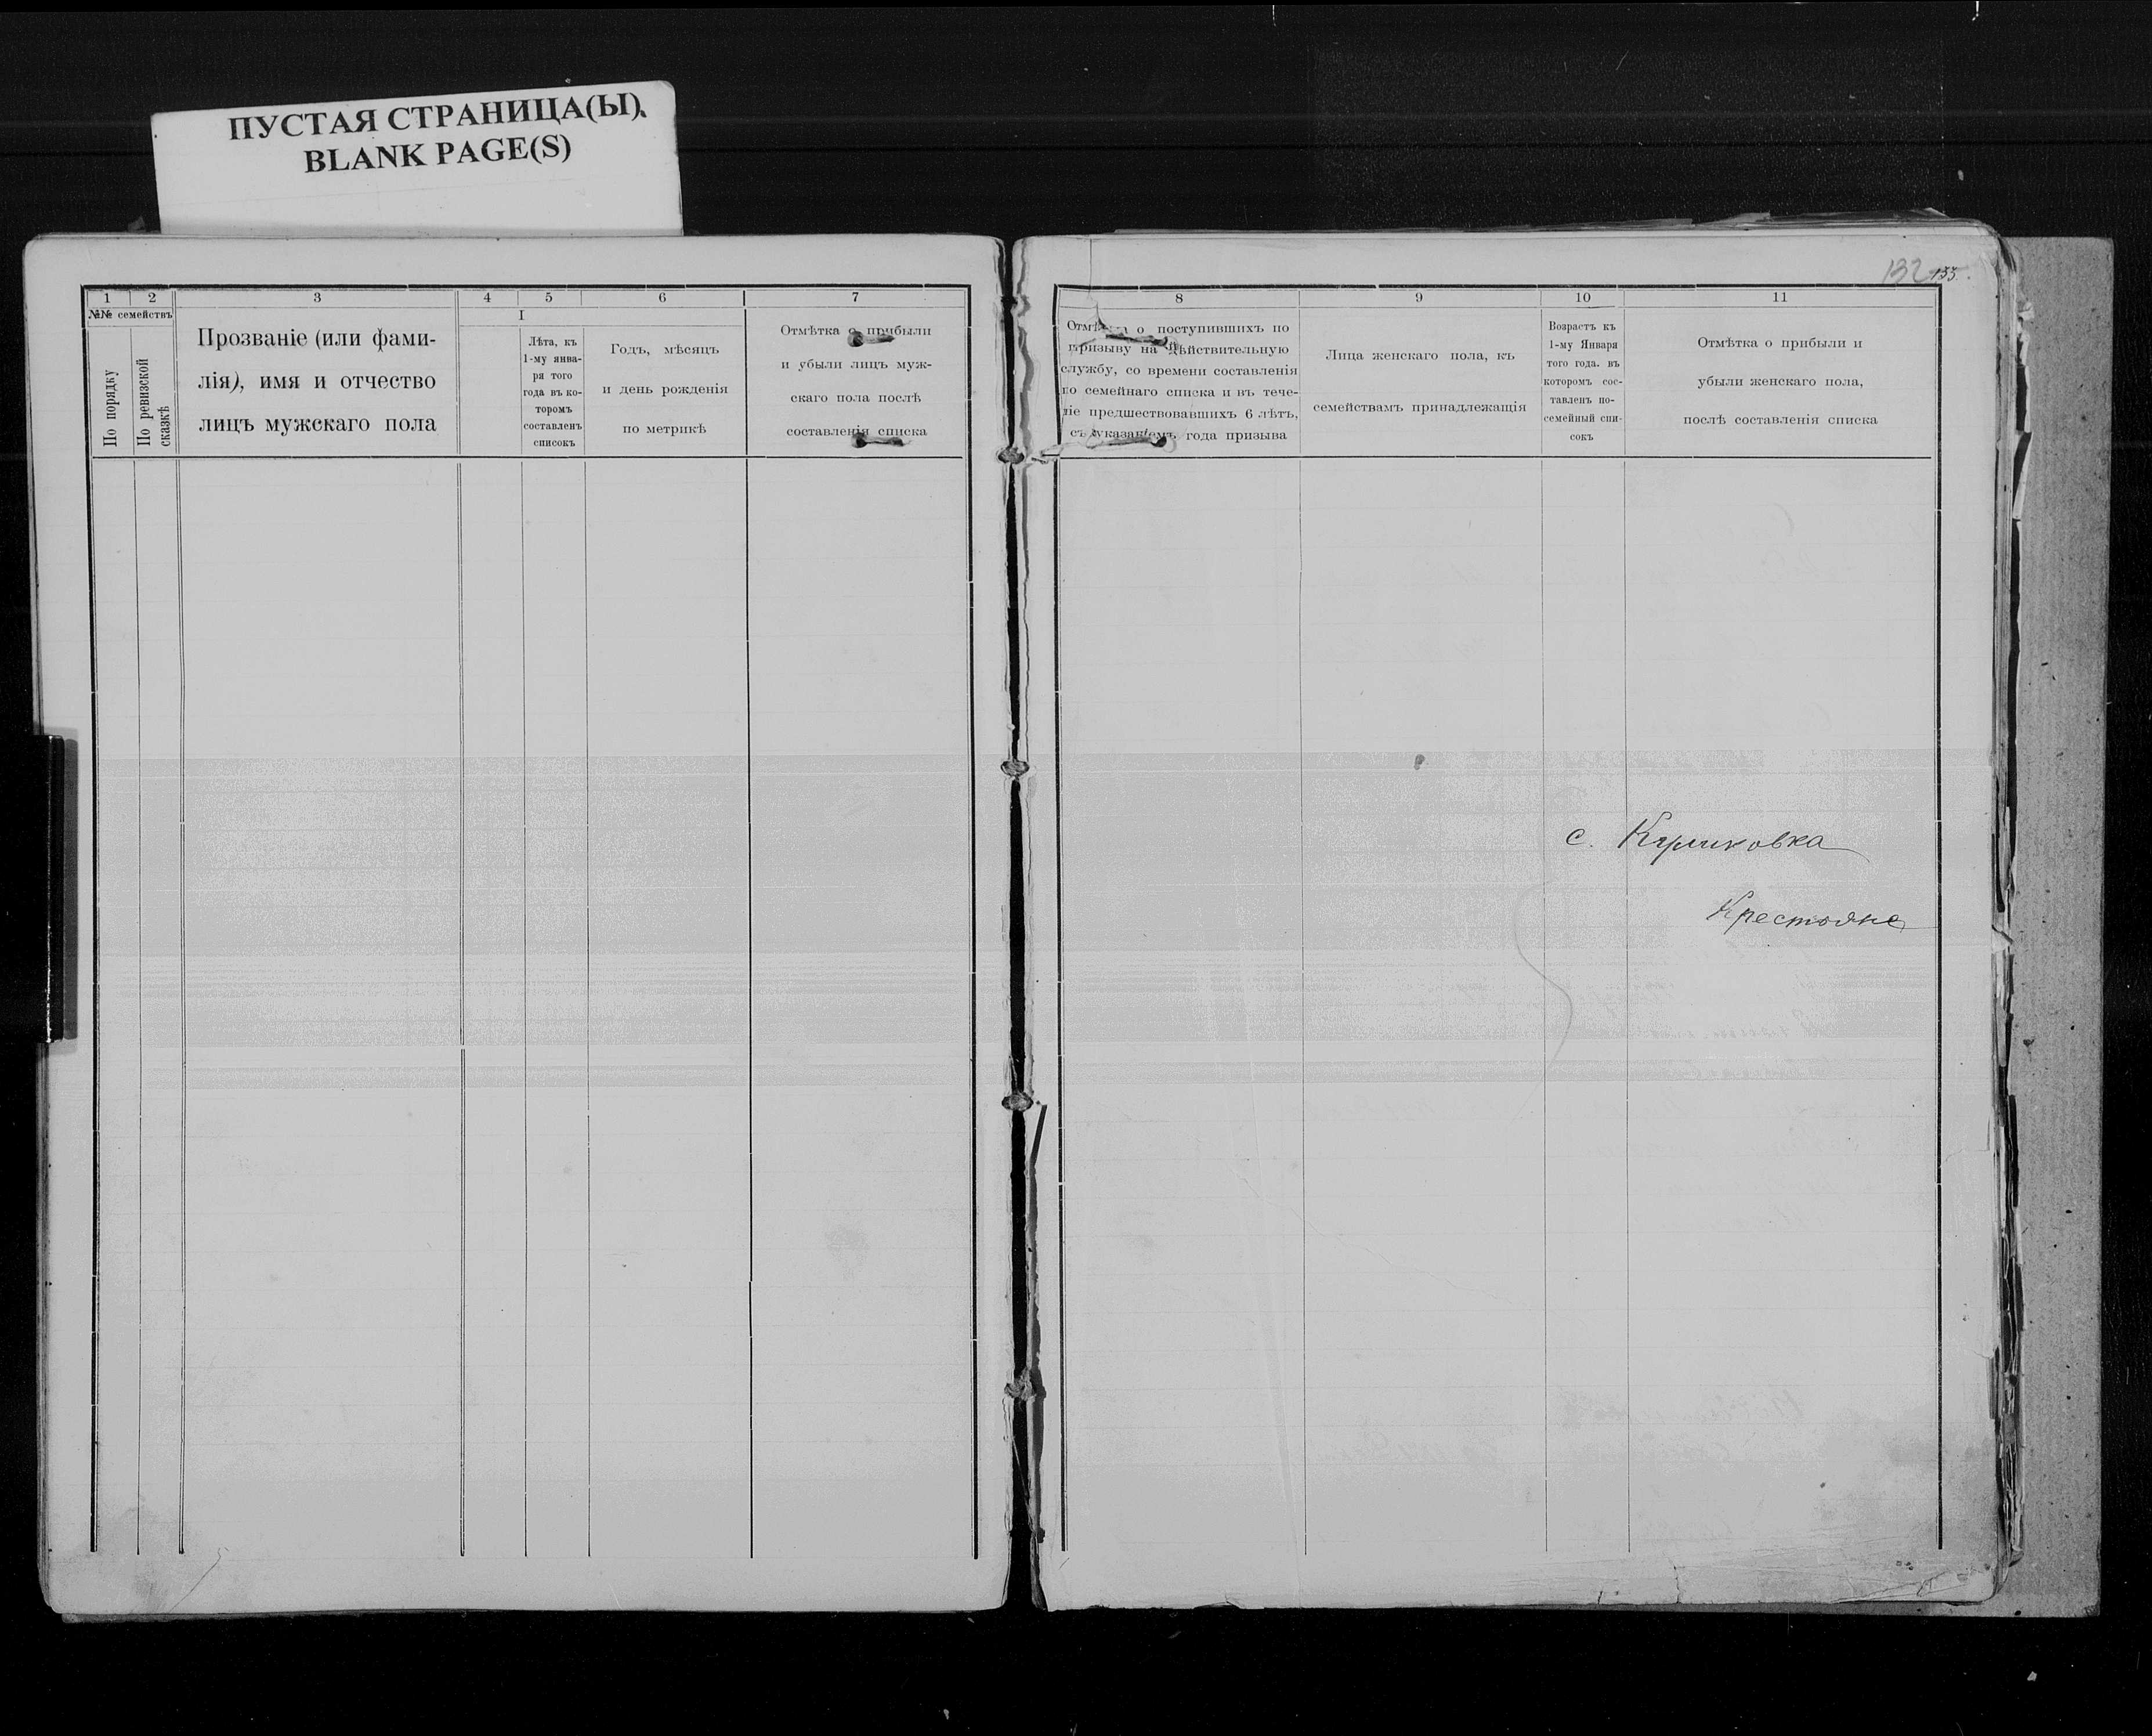 ПУСТАЯ СТРАНИЦА(Ы)
BLANK PAGE(S)
1 2 3 4 5 6 7
№№ семействъ
По порядку
По ревизской
сказкѣ
Прозваніе (или фами-
лія), имя и отчество
лицъ мужскаго пола
I
Лѣта, къ
1-му янва-
ря того
года въ ко-
торомъ
составленъ
списокъ
Годъ, мѣсяцъ
и день рожденія
по метрикѣ
Отмѣтка о прибыли
и убыли лицъ муж-
скаго пола послѣ
составленія списка
132 133.
8 9 10 11
Отмѣтка о поступившихъ по
призыву на дѣйствительную
службу, со времени составленія
по семейнаго списка и въ тече-
ніе предшествовавшихъ 6 лѣтъ,
съ указаніемъ года призыва
Лица женскаго пола, къ
семействамъ принадлежащія
Возрастъ къ
1-му Января
того года. въ
которомъ сос-
тавленъ по-
семейный спи-
сокъ
Отмѣтка о прибыли и
убыли женскаго пола,
послѣ составленія списка
с. Куликовка
Крестьяне